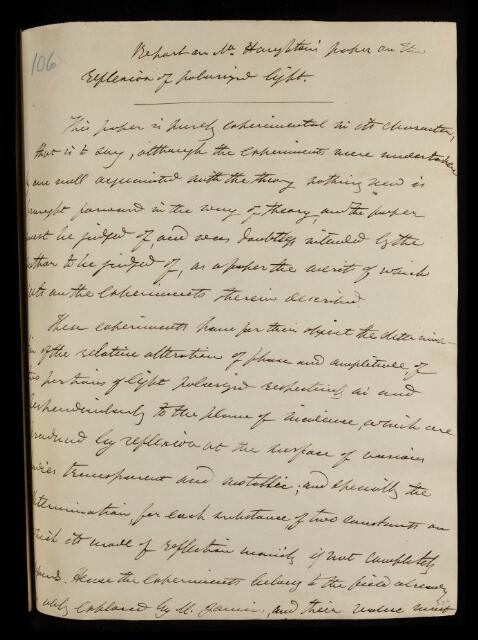 106
Report on Mr. Haughton's paper on the
Reflexion of polarized light.
This paper is purely experimental in its character,
that is to say, although the experiments were undertaken
by one well acquainted with the theory nothing new is
brought forward in the way of theory, and the paper
must be judged of, and was doubtless intended by the
author to be judged of, as a paper the merit of which
rests on the experiments therein described.
These experiments have for their object the determina-
tion of the relative alteration of phase and amplitude, of
two portions of light polarized respectively in and
perpendicularly to the plane of incidence, which are
produced by reflexion at the surface of various
bodies transparent and metallic; and specially the
determination for each substance of two constants on
which its mode of reflection mainly if not completely
depend. Hence the experiments belong to the field already
ably explored by M. Jamin, and their value must